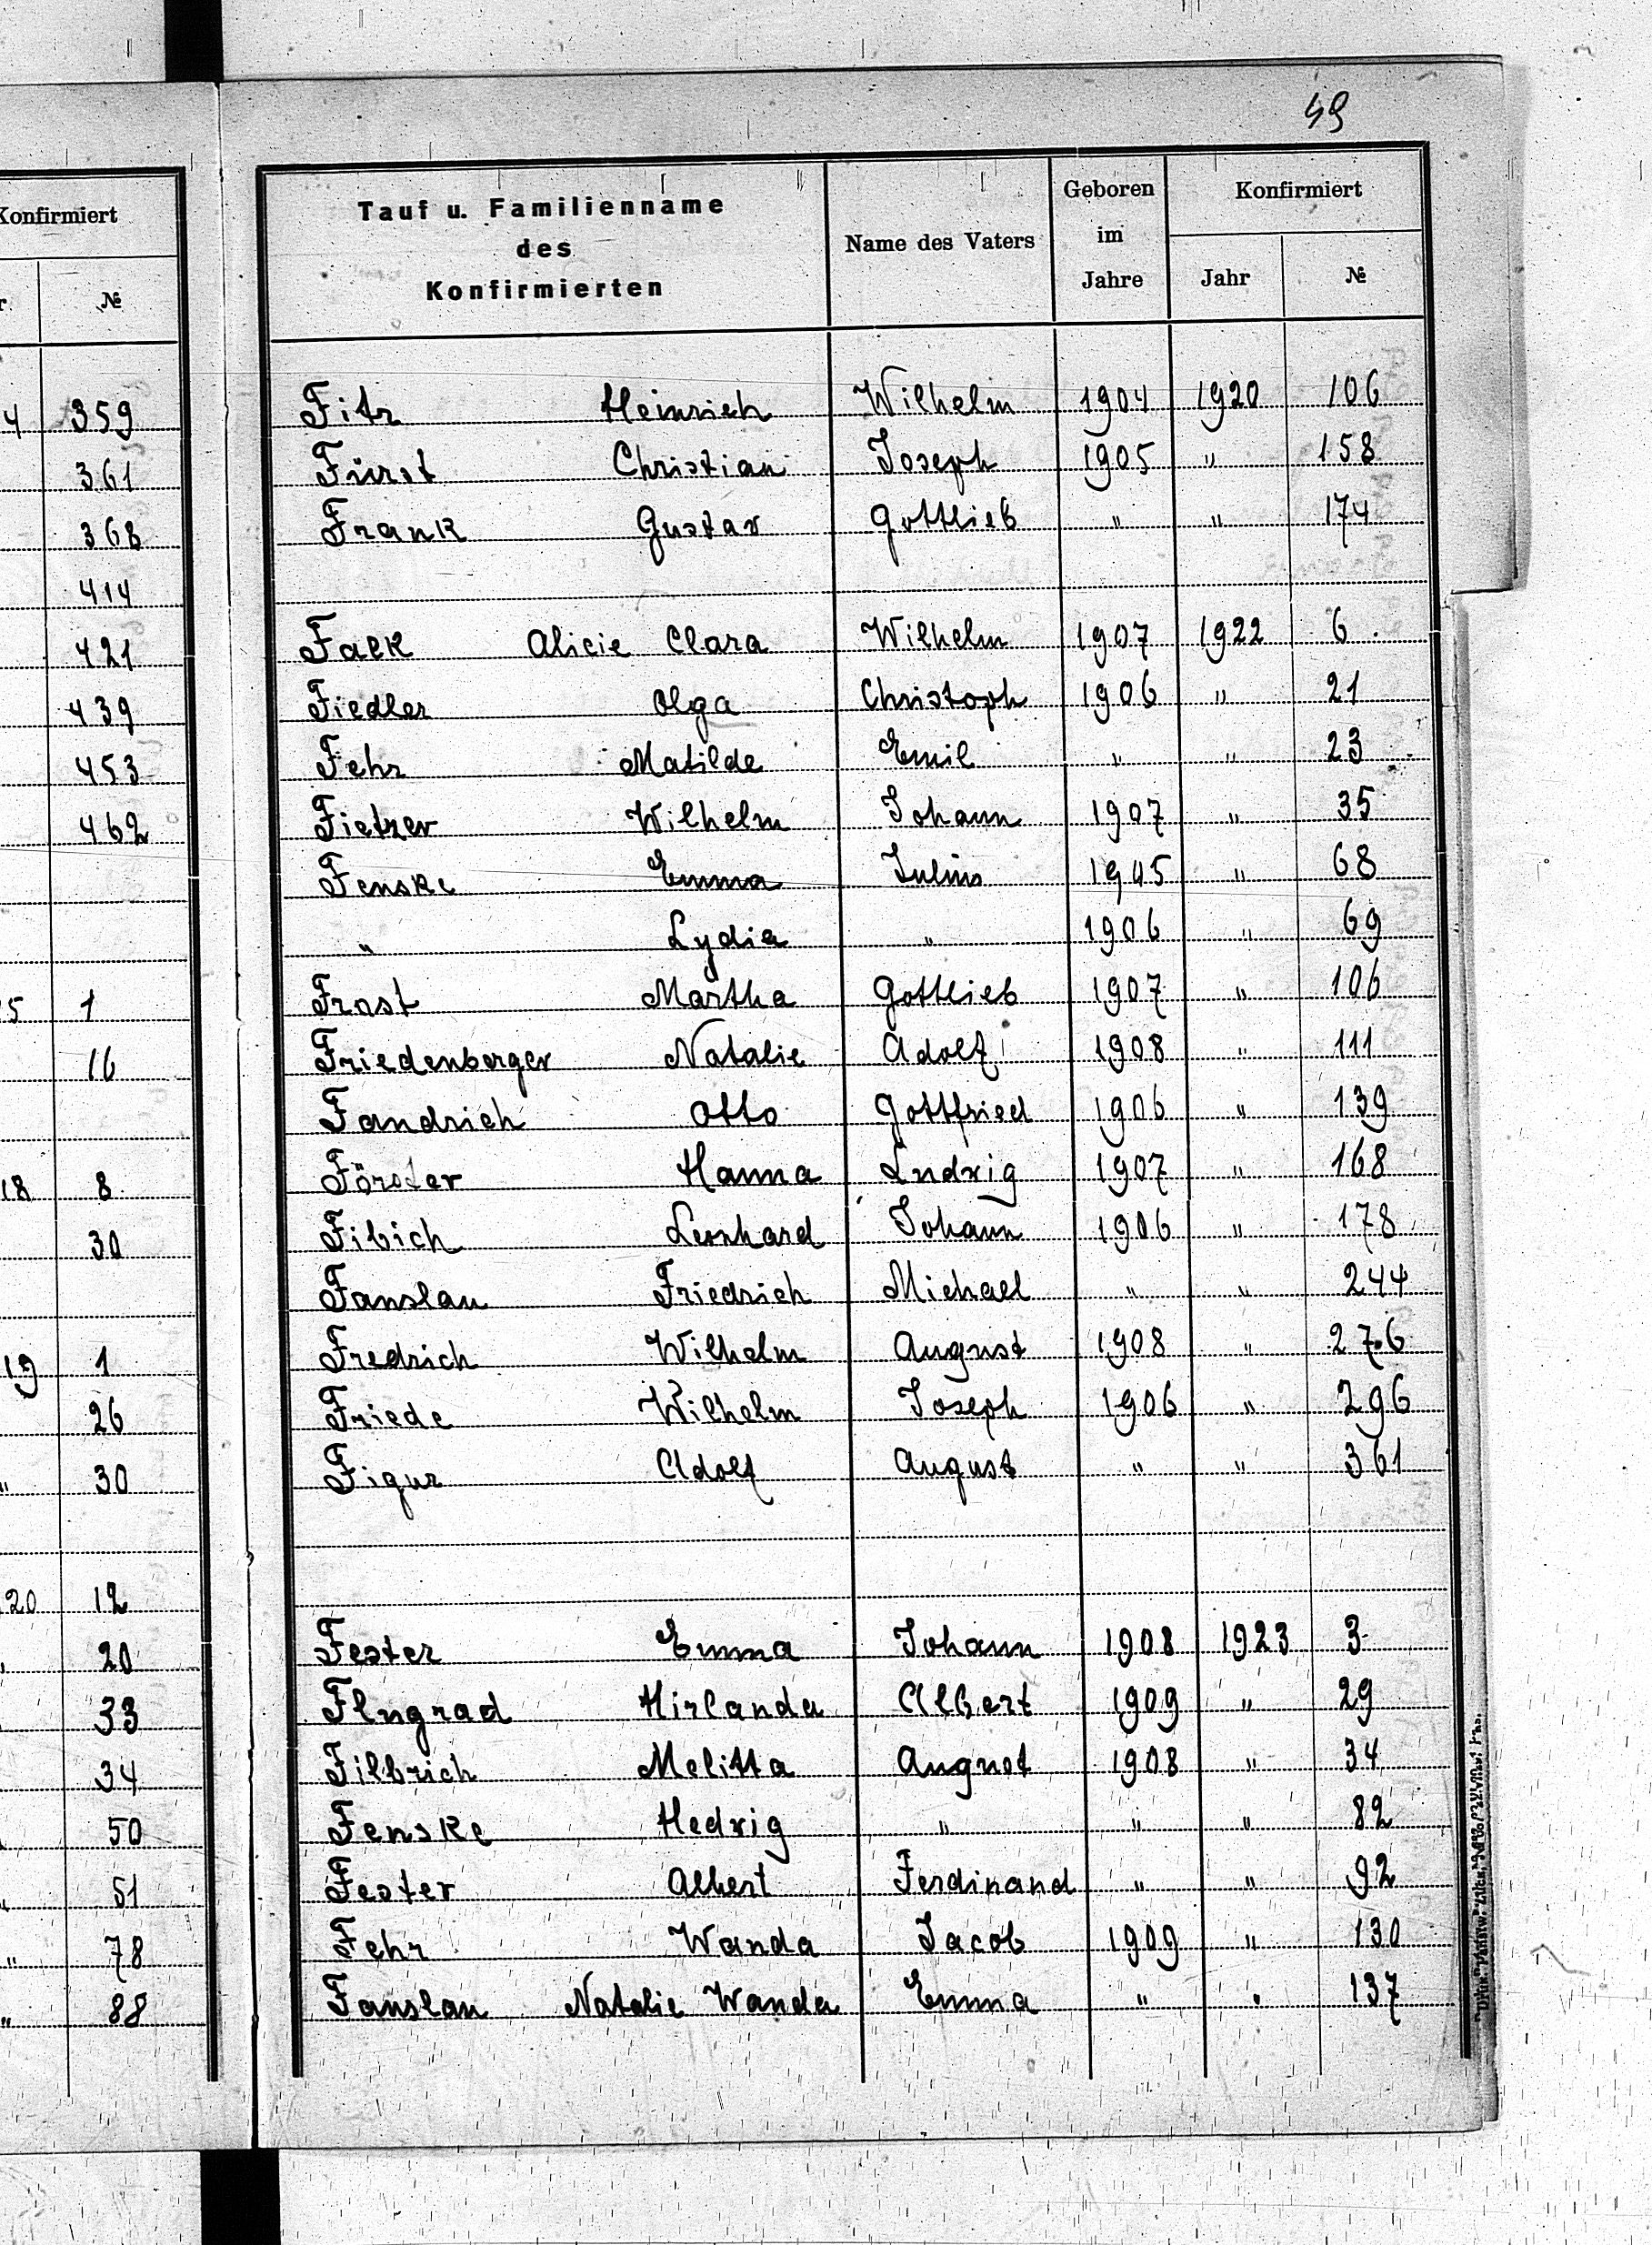 49
Konfirmiert
№
4 359
361
368
414
421
439
453
462
5 1
16
18 8
30
19 1
26
" 30
20 12
20
33
34
50
51
" 78
" 88
Tauf u. Familienname
des
Konfirmierten
Name des Vaters
Geboren
im
Jahre
Konfirmiert
Jahr
№
Fitz Heinrich Wilhelm 1904 1920 106
Fürst Christian Joseph 1905 " 158
Frank Gustav Gottlieb " " 174
Falk Alicie Clara Wilhelm 1907 1922 6
Fiedler Olga Christoph 1906 " 21
Fehr Matilde Emil " " 23
Fietzer Wilhelm Johann 1907 " 35
Fenske Emma Julius 1905 " 68
" Lydia " 1906 " 69
Frost Martha Gottlieb 1907 " 106
Friedenberger Natalie Adolf 1908 " 111
Fandrich Otto Gottfried 1906 " 139
Förster Hanna Ludwig 1907 " 168
Filich Leonhard Johann 1906 " 178
Fanslau Friedrich Michael " " 244
Fredrich Wilhelm August 1908 " 276
Friede Wilhelm Joseph 1906 " 296
Figur Adolf August " " 361
Fester Emma Johann 1908 1923 3
Flugrad Hirlanda Albert 1909 " 29
Filbrich Melitta August 1908 " 34
Fenske Hedwig " " " 82
Fester Albert Ferdinand " " 92
Fehr Wanda Jacob 1909 " 130
Fanslau Natalie Wanda Emma " " 137